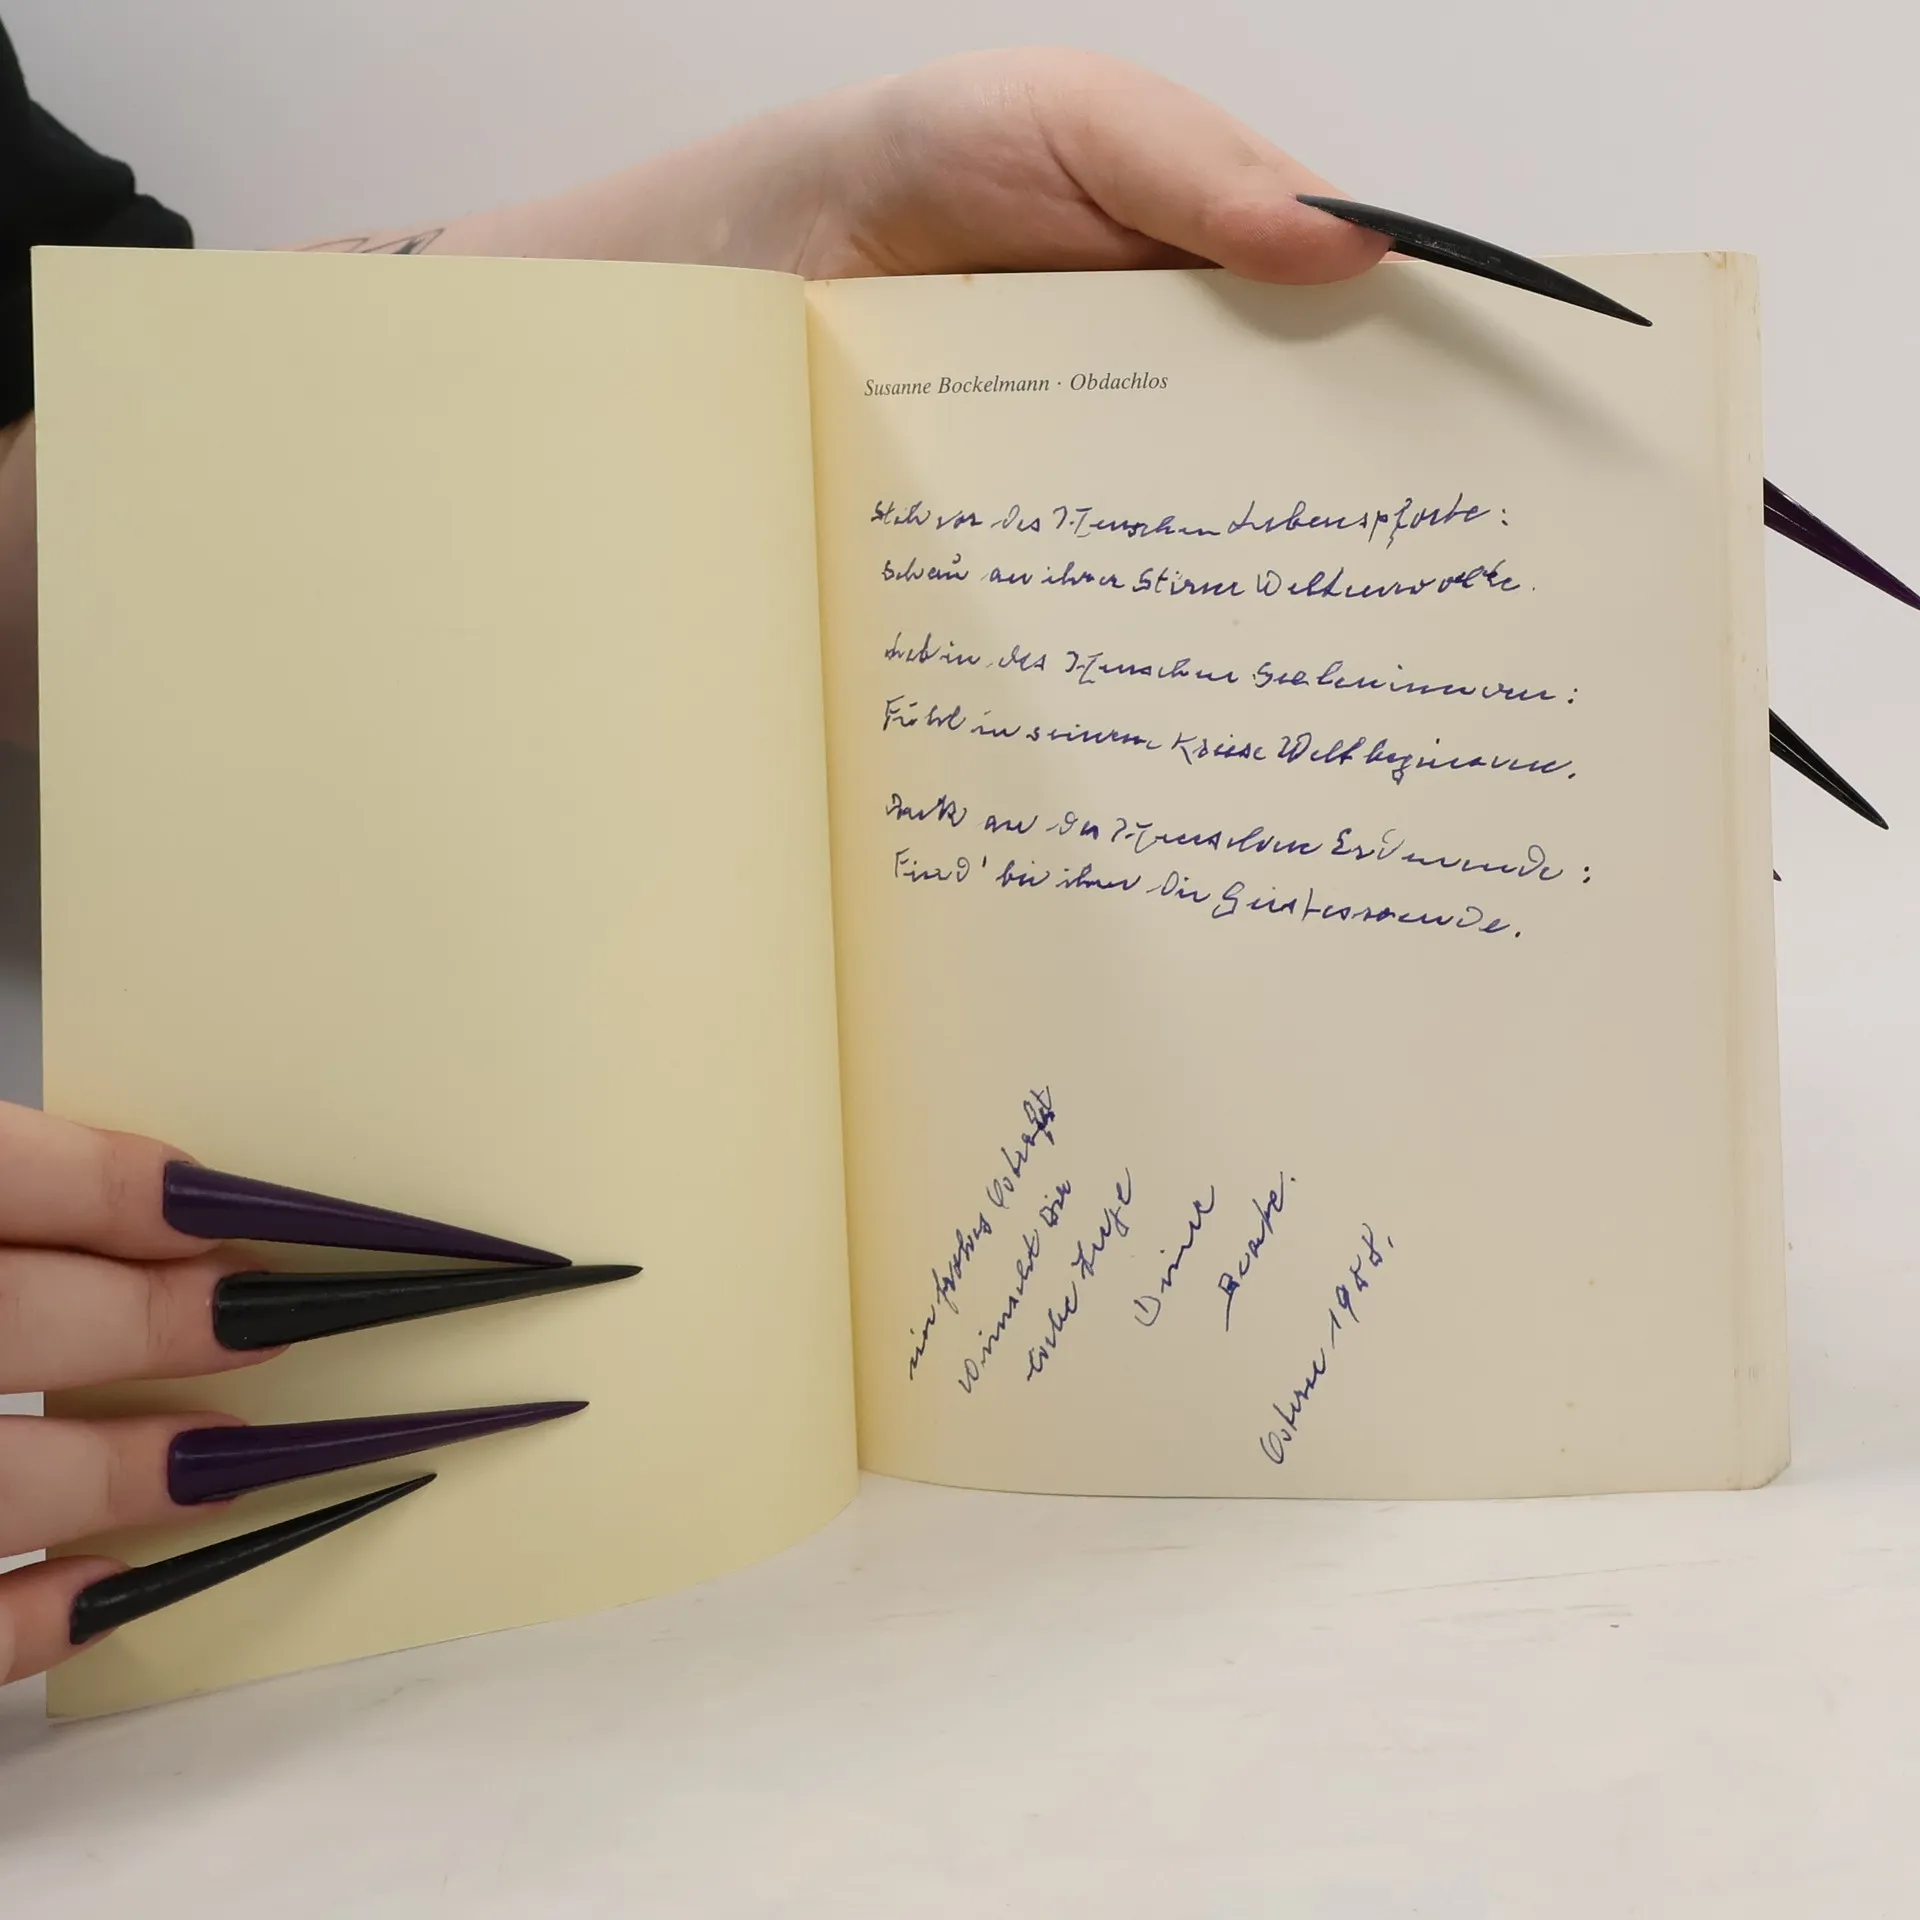 Susanne Bockelmann · Obdachlos
Steh vor des Menschen Lebenspforte:
schau an ihrer Stirne Weltenworte.
Leb in des Menschen Seeleninnern:
Fühl in seinem Kreise Weltbeginnen.
Denk an des Menschen Erdenende:
Find' bei ihm die Geisteswende.
ein frohes Osterfest
wünscht Dir
liebe
Deine
Beate.
Ostern 1988.